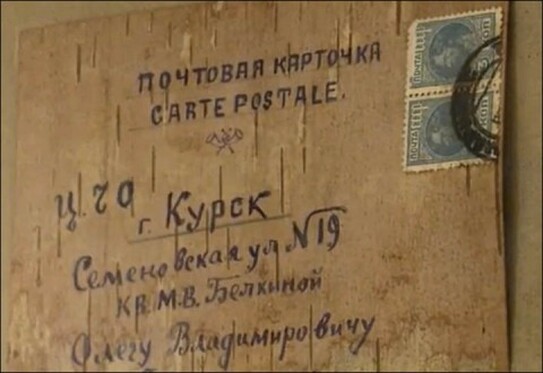 ПОЧТОВАЯ КАРТОЧКА
CARTE POSTALE.
Ц.ЧО
г. Курск
Семеновская ул №19
кв. М.В. Белкиной
Олегу Владимировичу
ПОЧТА
КОП
ПОЧТА
КОП